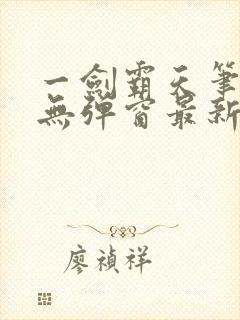 一劍霸天筆
無彈窗最新
廖禎祥